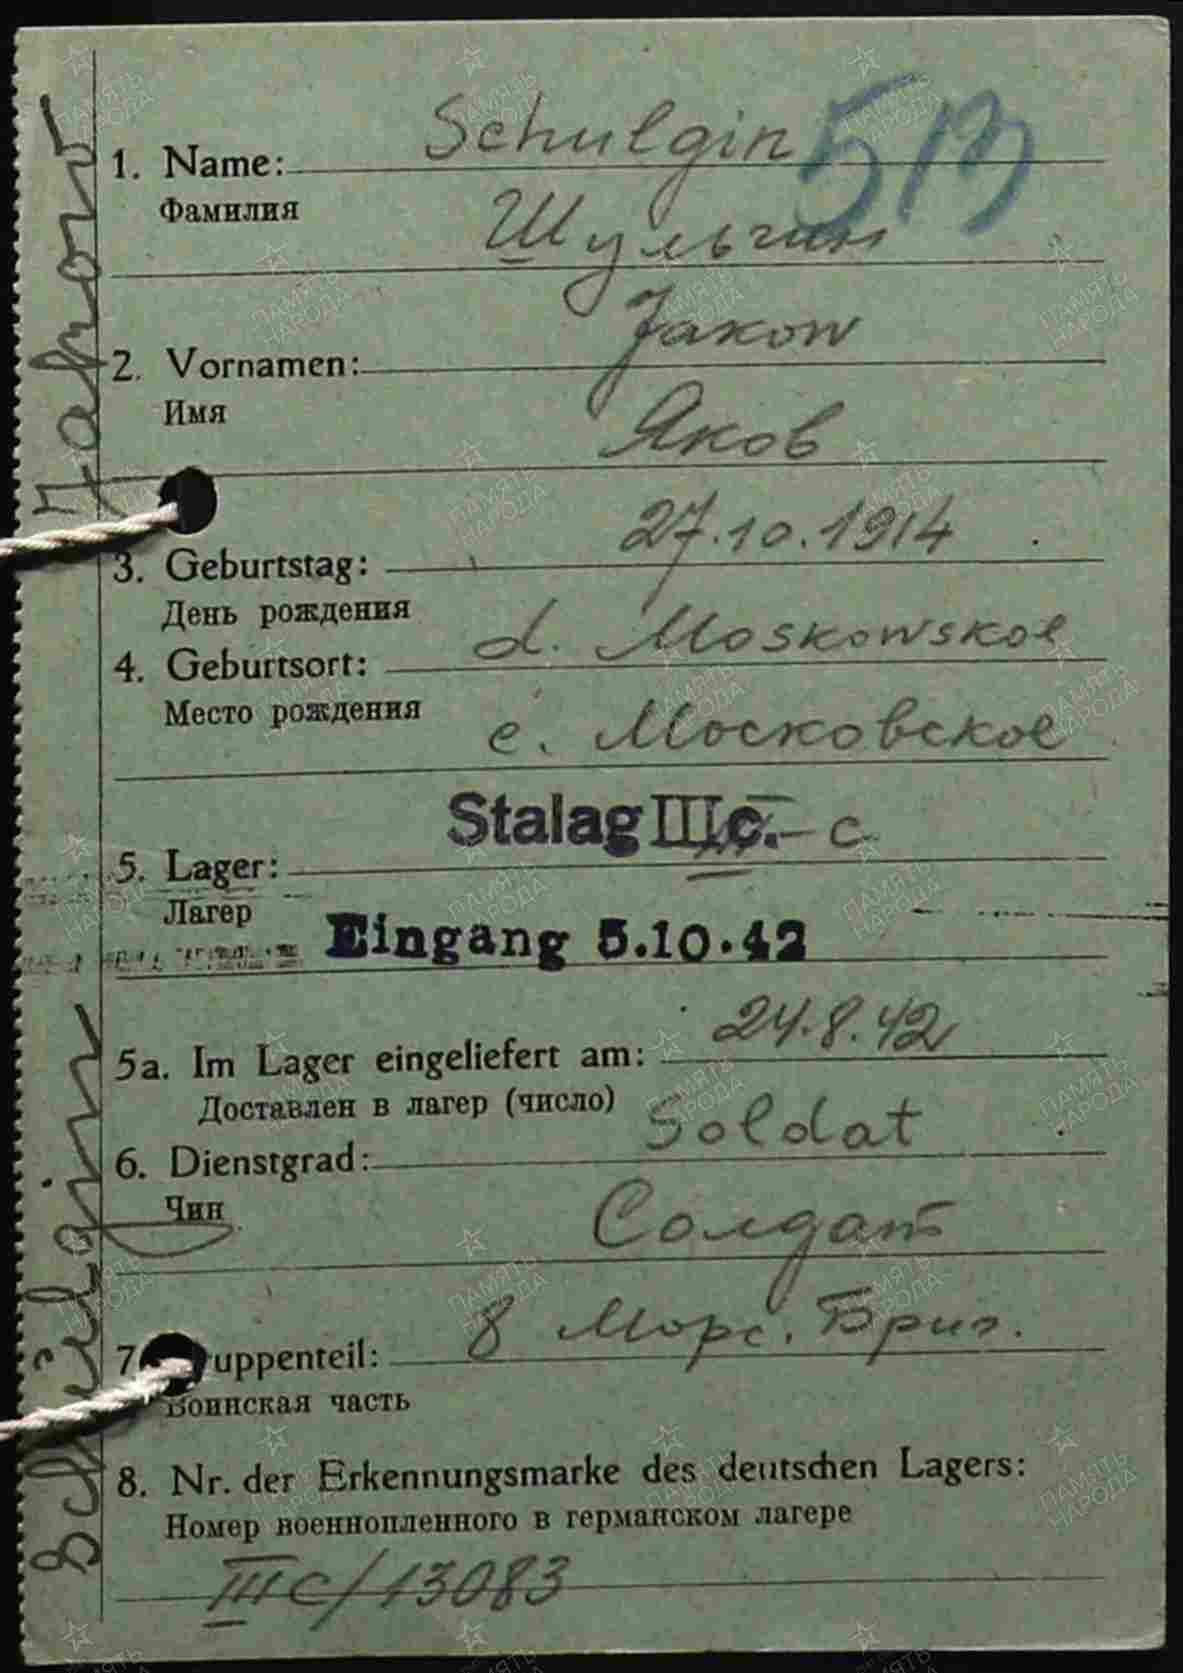 Schulgin
513
1. Name:
Фамилия
Шульгин
Jakow
2. Vornamen:
Имя
Яков
27.10.1914
3. Geburtstag:
День рождения
d. Moskowskoe
4. Geburtsort:
Место рождения
с. Московское
Stalag III c. III-c
5. Lager:
Лагер
Eingang 5.10.42
24.8.42
5a. Im Lager eingeliefert am:
Доставлен в лагер (число)
Soldat
6. Dienstgrad:
Чин
Солдат
8 Морс. Бриг.
7 ruppenteil:
Воинская часть
8. Nr. der Erkennungsmarke des deutschen Lagers:
Номер военнопленного в германском лагере
III C/13083
Schulgin Jakow
ПАМЯТЬ НАРОДА